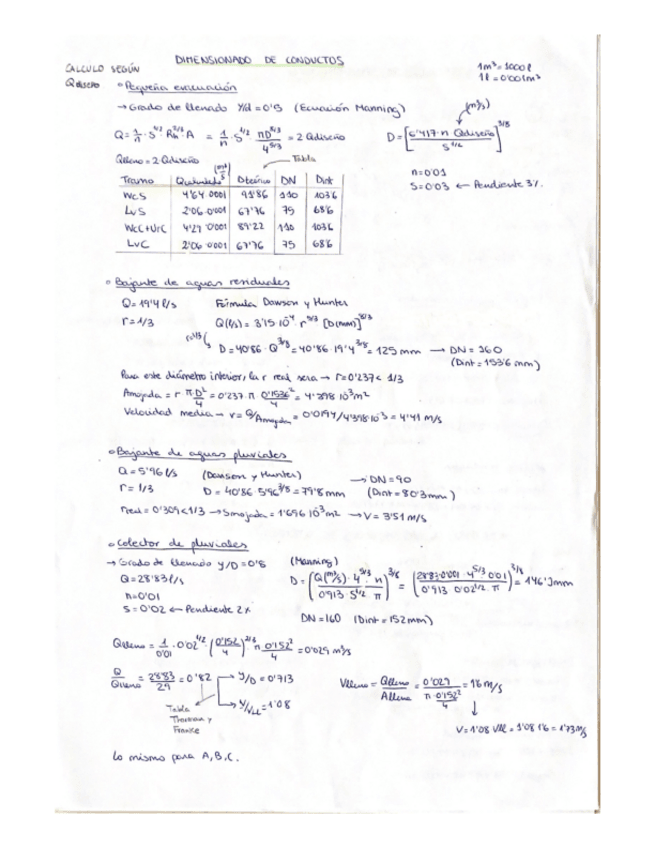 DIMENSIONADO DE CONDUCTOS
CALCULO SEGÚN
Q diseño
1m³ = 1000 l
1l = 0'001m³
• Pequeña evacuación
→ Grado de llenado Y/d = 0'5 (Ecuación Manning)
Q = 1/n · S^1/2 · Rh^2/3 · A = 1/n · S^1/2 · πD^8/3 / 4^5/3 = 2 Qdiseño
(m³/s)
D = [6'417 · n · Qdiseño / S^1/2]^3/8
Qlleno = 2 Qdiseño
Tabla
n = 0'01
S = 0'03 ← Pendiente 3%
Tramo Dteórico DN Dint
WcS 4'64·0'001 91'86 110 103'6
LvS 2'06·0'001 67'76 75 68'6
Wcc+Urc 4'29·0'001 89'22 110 103'6
LvC 2'06·0'001 67'76 75 68'6
• Bajante de aguas residuales
Q = 19'4 l/s Fórmula Dawson y Hunter
r = 1/3 Q(l/s) = 3'15·10^-4 · r^5/3 [D(mm)]^8/3
r=1/3 D = 40'86 · Q^3/8 = 40'86 · 19'4^3/8 = 125 mm → DN = 160
(Dint = 153'6 mm)
Para este diámetro interior, la r real sera → r = 0'237 < 1/3
Amojada = r πD²/4 = 0'237·π 0'1536²/4 = 4'398·10^3 m²
Velocidad media → v = Q/Amojada = 0'0194/4'398·10^3 = 4'41 m/s
• Bajante de aguas pluviales
Q = 5'96 l/s (Dawson y Hunter) → DN = 90
r = 1/3 D = 40'86 · 5'96^3/8 = 79'8 mm (Dint = 80'3mm)
rreal = 0'309 < 1/3 → Smojada = 1'696·10^3 m² → V = 3'51 m/s
• Colector de pluviales
→ Grado de llenado y/D = 0'8 (Manning)
Q = 28'83 l/s
n = 0'01
S = 0'02 ← Pendiente 2%
D = (Q(m³/s) · 4^5/3 · n / 0'913 · S^1/2 · π)^3/8 = (28'83·0'001 · 4^5/3 · 0'01 / 0'913 · 0'02^1/2 · π)^3/8 = 146'3mm
DN = 160 (Dint = 152mm)
Qlleno = 1/0'01 · 0'02^1/2 · (0'152/4)^2/3 · π 0'152²/4 = 0'029 m³/s
Q/Qlleno = 28'83/29 = 0'82 → Y/D = 0'713
→ V/VLL = 1'08
Tabla
Thorman y
Franke
Vlleno = Qlleno/Alleno = 0'029/π·0'152²/4 = 1'6 m/s
V = 1'08 Vll = 1'08 · 1'6 = 1'73 m/s
Lo mismo para A, B, C.